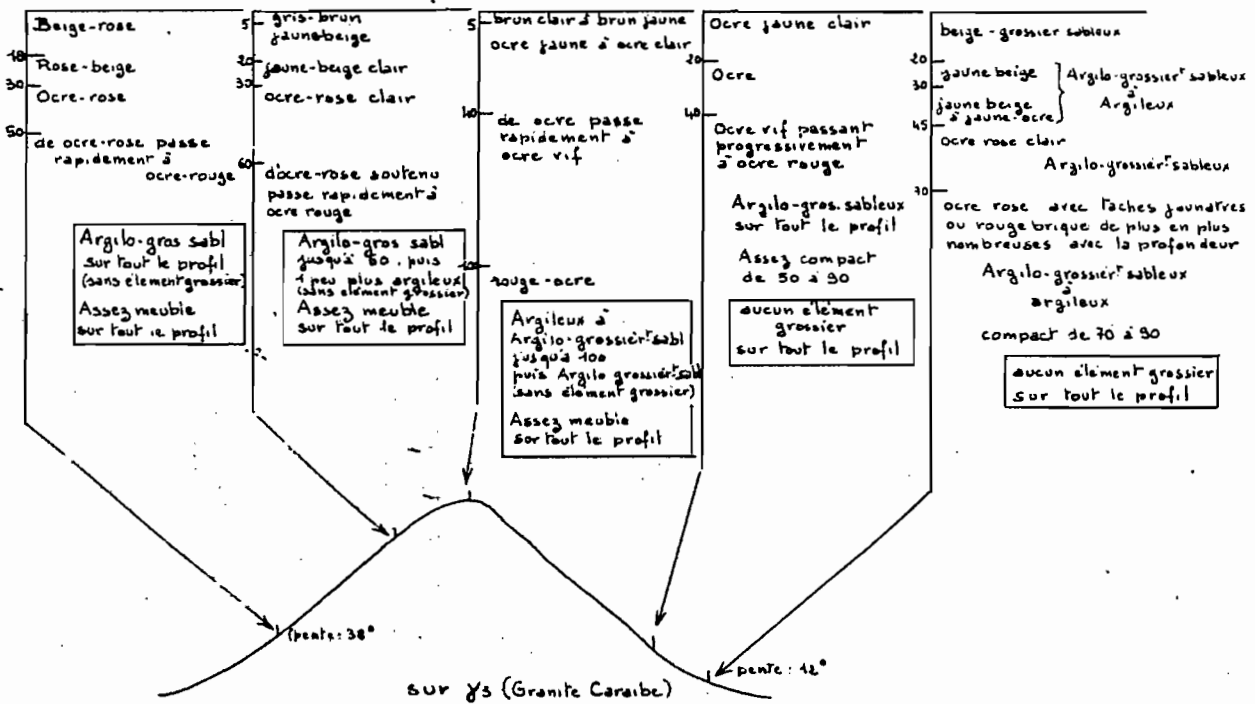 Beige-rose
10
Rose-beige
30
Ocre-rose
50
de ocre-rose passe
rapidement à
ocre-rouge
Argilo-gros sabl
sur tout le profil
(sans élément grossier)
Assez meuble
sur tout le profil
5
gris-brun
jaunebeige
20
jaune-beige clair
30
ocre-rose clair
60
d'ocre-rose soutenu
passe rapidement à
ocre rouge
Argilo-gros sabl
jusqu'à 60, puis
1 peu plus argileux
(sans élément grossier)
Assez meuble
sur tout le profil
5
brun clair à brun jaune
ocre jaune à ocre clair
40
de ocre passe
rapidement à
ocre vif
100
rouge-ocre
Argileux à
Argilo-grossiert sabl
jusqu'à 100
puis Argilo grossiert sabl
(sans élément grossier)
Assez meuble
sur tout le profil
Ocre jaune clair
20
Ocre
40
Ocre vif passant
progressivement
à ocre rouge
Argilo-gros. sableux
sur tout le profil
Assez compact
de 50 à 90
aucun élément
grossier
sur tout le profil
beige-grossier sableux
20
jaune beige
30
jaune beige
à jaune-ocre
Argilo-grossiert sableux
à
Argileux
45
ocre rose clair
Argilo-grossiert sableux
70
ocre rose avec taches jaunâtres
ou rouge brique de plus en plus
nombreuses avec la profondeur
Argilo-grossiert sableux
à
argileux
compact de 70 à 90
aucun élément grossier
sur tout le profil
(pente: 38°
pente: 12°
sur γ3 (Granite Caraibe)